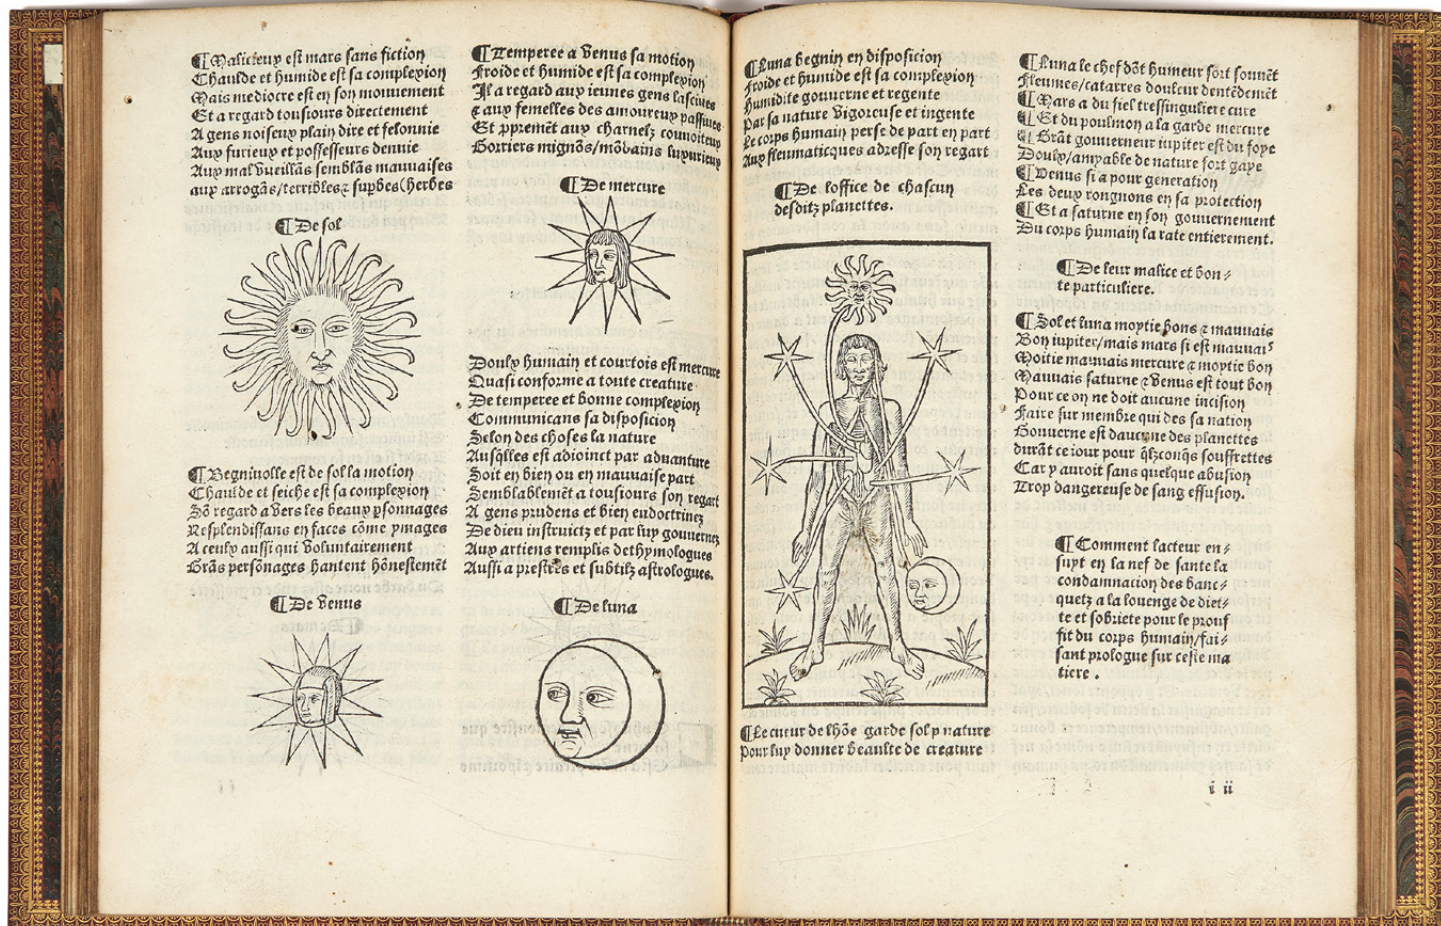 ¶Malicieux est mars sans fiction
Chaulde et humide est sa complexion
Mais mediocre est en son mouuement
Et a regard tousiours directement
A gens noiseux plain dire et felonnie
Aux furieux et possesseurs denuie
Aux mal vueillãs semblãs mauuaises
aux arrogãs/terribles ⁊ supbes (herbes
¶De sol
¶Begniuolle est de sol la motion
Chaulde et seiche est sa complexion
Sõ regard a vers les beaux psonnages
Resplendissans en faces cõme ymages
A ceulx aussi qui voluntairement
Grãs persõnages hantent hõnestemẽt
¶De venus
¶Temperee a venus sa motion
Froide et humide est sa complexion
Il a regard aux ieunes gens lasciues
⁊ aux femelles des amoureux passiues
Et ppremẽt aux charnelz conuoiteux
Gorriers mignõs/mõdains luxurieux
¶De mercure
Doulx humain et courtois est mercure
Quasi conforme a toute creature
De temperee et bonne complexion
Communicans sa disposicion
Selon des choses la nature
Ausqlles est adioinct par aduanture
Soit en bien ou en mauuaise part
Semblablemẽt a tousiours son regart
A gens prudens et bien endoctrinez
De dieu instruictz et par luy gouuernez
Aux artiens remplis dethymologues
Aussi a prestres et subtilz astrologues.
¶De luna
¶Luna begnin en disposicion
Froide et humide est sa complexion
Humidite gouuerne et regente
Par sa nature vigoreuse et ingente
Le corps humain perse de part en part
Aux fleumaticques adresse son regart
¶De loffice de chascun
desditz planettes.
¶Le cueur de lhõe garde sol p nature
Pour luy donner beaulte de creature
¶Luna le chef dõt humeur sort souuẽt
Fleumes/catarres douleur dentẽdemẽt
¶Mars a du fiel tressinguliere cure
¶Et du poulmon a la garde mercure
¶Grãt gouuerneur iupiter est du foye
Doulx/amyable de nature fort gaye
¶Venus si a pour generation
Les deux rongnons en sa protection
¶Et a saturne en son gouuernement
Du corps humain la rate entierement.
¶De leur malice et bon-
te particuliere.
¶Sol et luna moytie bons ⁊ mauuais
Bon iupiter/mais mars si est mauuais
Moitie mauuais mercure ⁊ moytie bon
Mauuais saturne ⁊ venus est tout bon
Pour ce on ne doit aucune incision
Faire sur membre qui des sa nation
Gouuerne est daucune des planettes
durãt ce iour pour qlzcõqs souffrettes
Car y auroit sans quelque abusion
Trop dangereuse de sang effusion.
¶Comment lacteur en-
suyt en la nef de sante la
condamnacion des banc-
quetz a la louenge de diet-
te et sobriete pour le prouf
fit du corps humain/fai-
sant prologue sur ceste ma
tiere.
i ii